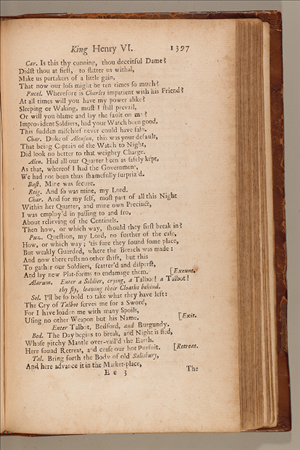 King Henry VI. 1397
Car. Is this thy cunning, thou deceitful Dame?
Didst thou at first, to flatter us withal,
Make us partakers of a little gain,
That now our loss might be ten times so much?
Pucel. Wherefore is Charles impatient with his Friend?
At all times will you have my power alike?
Sleeping or Waking, must I still prevail,
Or will you blame and lay the fault on me?
Improvident Soldiers, had your Watch been good,
This sudden mischief never could have faln.
Char. Duke of Alanson, this was your default,
That being Captain of the Watch to Night,
Did look no better to that weighty Charge.
Alan. Had all our Quarter's been as safely kept,
As that, whereof I had the Government,
We had not been thus shamefully surpriz'd.
Bast. Mine was secure.
Reig. And so was mine, my Lord.
Char. And for my self, most part of all this Night
Within her Quarter, and mine own Precinct,
I was employ'd in passing to and fro,
About relieving of the Centinels.
Then how, or which way, should they first break in?
Puc. Question, my Lord, no further of the case,
How, or which way; 'tis sure they found some place,
But weakly Guarded, where the Breach was made:
And now there rests no other shift, but this
To gather our Soldiers, scatter'd and disperst,
And lay new Plat-forms to endamage them. [Exeunt.
Alarum. Enter a Soldier, crying, a Talbot! a Talbot!
they fly, leaving their Cloaths behind.
Sol. I'll be so bold to take what they have left:
The Cry of Talbot serves me for a Sword,
For I have loaden me with many Spoils,
Using no other Weapon but his Name. [Exit.
Enter Talbot, Bedford, and Burgundy.
Bed. The Day begins to break, and Night is fled,
Whose pitchy Mantle over-vail'd the Earth.
Here sound Retreat, and cease our hot Pursuit. [Retreat.
Tal. Bring forth the Body of old Salisbury,
And here advance it in the Market-place,
E e 3 The